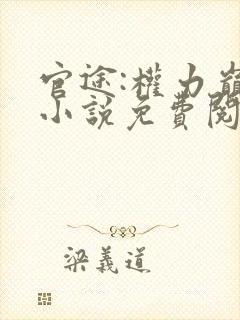 官途:權力巔
小說免費閱
梁義道